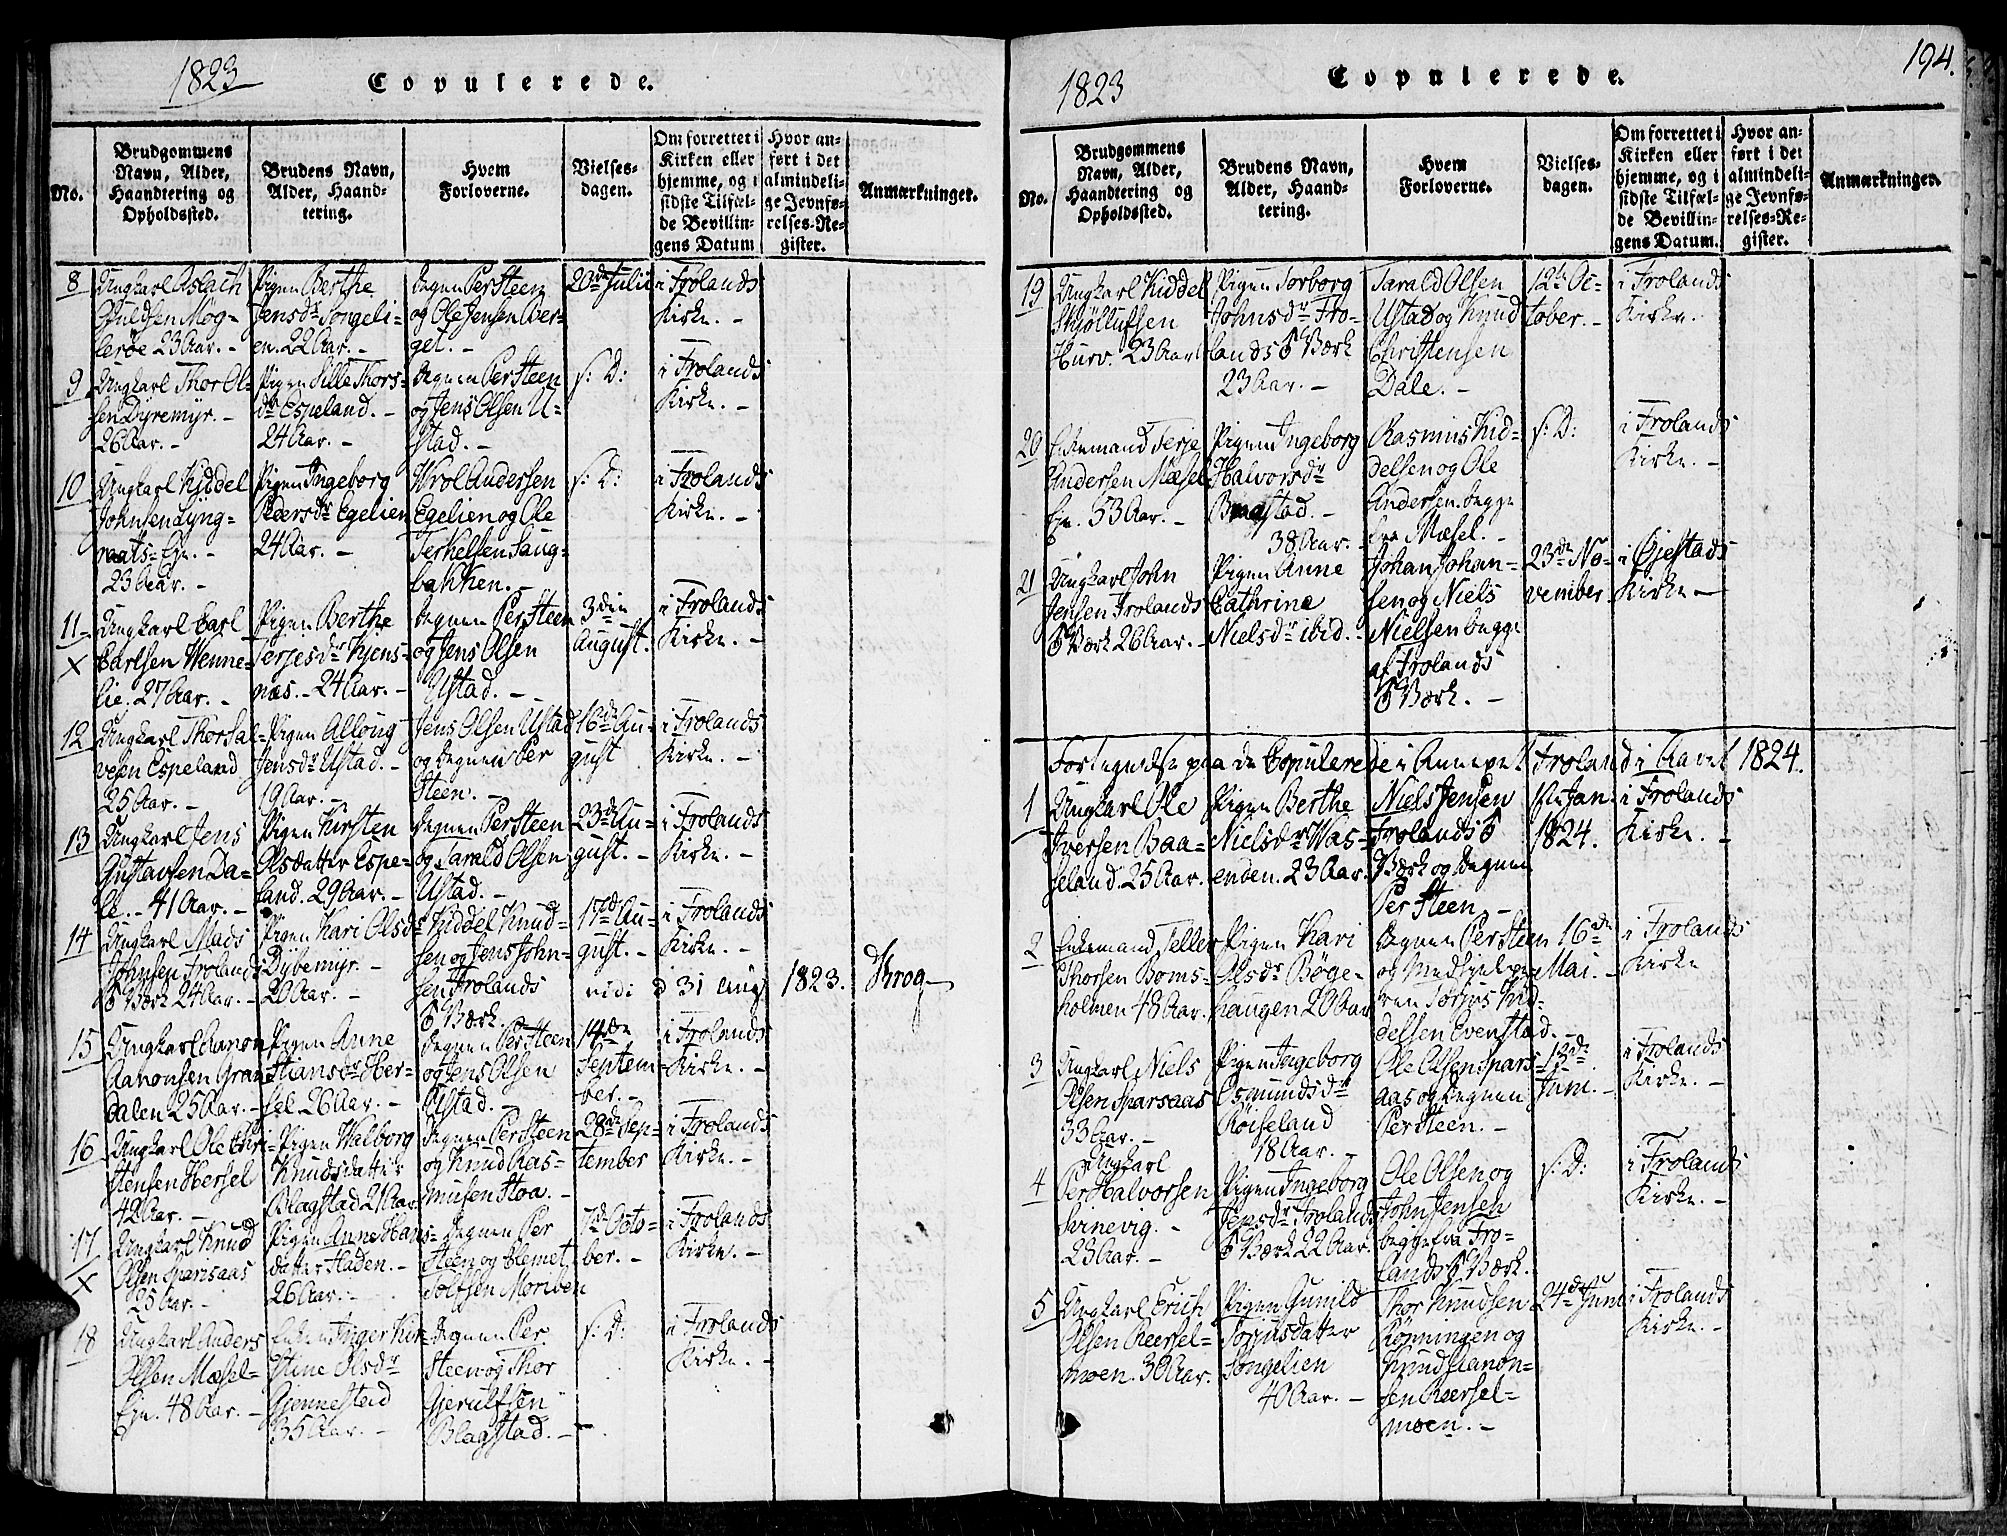 1823
Copulerede.
No.
Brudgommens Navn, Alder, Haandtering og Opholdssted.
Brudens Navn, Alder, Haandtering.
Hvem Forloverne.
Vielses-dagen.
Om forrettet i Kirken eller hjemme, og i sidste Tilfælde Bevillingens Datum
Hvor anført i det almindelige Jevnførelses-Register.
Anmærkninger.
8
Ungkarl Aslach
Møglerøe 23 Aar. -
Pigen Berthe
Jensdr Songelien. 22 Aar. -
Degnen Per Steen
og Ole Jensen Berget. -
20de Julii
i Frolands
Kirke. -
9
Ungkarl Thor Olsen
Dyremyr. -
26 Aar. -
Pigen Sille Thorsdr
Espeland. -
24 Aar. -
Degnen Per Steen
og Jens Olsen Ustad. -
s: D:
i Frolands
Kirke. -
10
Ungkarl Kiddel
Johnsen Lyng=
vaats= Eje. -
23 Aar. -
Pigen Ingeborg
Pedersdr Egelien
24 Aar. -
Wrol Andersen
Egelien og Ole
Terkelsen Laug=
bakken. -
s: D:
i Frolands
Kirke. -
11
X
Ungkarl Carl
Carlsen Wenne=
lie; 27 Aar. -
Pigen Berthe
Terjesdr Kjens=
næs. - 24 Aar. -
Degnen Per Steen
og Jens Olsen
Ustad. -
3die
August.
i Frolands
Kirke. -
12
Ungkarl Thor Sal=
vesen Espeland
25 Aar. -
Pigen Alloug
Jensdr Ustad. -
19 Aar. -
Jens Olsen Ustad
og Degnen Per
Steen. -
16de Au=
gust
i Frolands
Kirke. -
13
Ungkarl Jens
Gustavsen Da=
le. - 41 Aar. -
Pigen Kirsten
Olsdatter Espe=
land. 29 Aar. -
Degnen Per Steen
og Tarald Olsen
Ustad. -
23de Au=
gust. -
i Frolands
Kirke. -
14
Ungkarl Mads
Johnsen Frolands
Værk 24 Aar. -
Pigen Kari Olsdr
Dybemyr. -
20 Aar. -
Kiddel Knud=
sen og Jens John=
sen Frolands
Værk.
17de Au=
gust. -
i Frolands
Kirke. -
vidi d 31 Aug 1823. Krog
15
Ungkarl Aanon
Aanonsen Gran=
dalen 25 Aar. -
Pigen Anne
Stiansdr Her=
sel. 26 Aar. -
Degnen Per Steen
og Jens Olsen
Ustad. -
14de
Septem=
ber. -
i Frolands
Kirke. -
16
Ungkarl Ole Chri=
stensen Hersel
42 Aar. -
Pigen Walborg
Knudsdatter
Blagstad 21 Aar
Degnen Per Steen
og Knud Ras=
musen Stoa. -
28de Sep=
tember
i Frolands
Kirke. -
17
X
Ungkarl Knud
Olsen Sparsaas
25 Aar. -
Pigen Anne Hans=
datter Staden. -
26 Aar. -
Degnen Per
Steen og Clemet
Tolfsen Morviken
7de Octo=
ber. -
i Frolands
Kirke. -
18
Ungkarl Anders
Olsen Mæsel=
Eje. 48 Aar. -
Enken Inger Kir=
stine Olsdr
Gjennestad
35 Aar. -
Degnen Per
Steen og Thor
Gjerulfsen
Blagstad. -
s: D:
i Frolands
Kirke. -
1823
Copulerede.
194.
No.
Brudgommens Navn, Alder, Haandtering og Opholdssted.
Brudens Navn, Alder, Haandtering.
Hvem Forloverne.
Vielses-dagen.
Om forrettet i Kirken eller hjemme, og i sidste Tilfælde Bevillingens Datum.
Hvor anført i det almindelige Jevnførelses-Register.
Anmærkninger.
19
Ungkarl Kiddel
Skjøllufsen
Hurv. 23 Aar
Pigen Torborg
Johnsdr Fro=
lands Værk
23 Aar. -
Tarald Olsen
Ustad og Knud
Christensen
Dale. -
12te Oc=
tober. -
i Frolands
Kirke. -
20
Enkemand Terje
Andersen Mæsel
Eje. 53 Aar. -
Pigen Ingeborg
Halvorsdr
Blagstad. -
38 Aar. -
Rasmus Kid=
delsen og Ole
Andersen begge
fra Mæsel. -
s: D:
i Frolands
Kirke. -
21
Ungkarl John
Jensen Frolands
Værk 26 Aar. -
Pigen Anne
Cathrine
Nielsdr ibid. -
Johan Johan=
sen og Niels
Nielsen begge
af Frolands
Værk. -
23de No=
vember
i Øjestads
Kirke -
Fortegnelse paa de Copulerede i Annexet Froland i Aaret 1824.
1
Ungkarl Ole
Iversen Baa=
seland. 25 Aar.
Pigen Berthe
Nielsdr Was=
enden. 23 Aar.
Niels Jensen
Frolands
Værk og Degnen
Per Steen -
1ste Jan.
1824.
i Frolands
Kirke. -
2
Enkemand Tellev
Thorsen Boms=
holmen 48 Aar.
Pigen Kari
Olsdr Bøge=
haugen 20 Aar
Degnen Per Steen
og Medhjelpe=
ren Torjus Kid=
delsen Evenstad. -
16de
Mai. -
i Frolands
Kirke
3
Ungkarl Niels
Olsen Sparsaas
33 Aar. -
Pigen Ingeborg
Osmundsdr
Røiseland
18 Aar. -
Ole Olsen Spars=
aas og Degnen
Per Steen. -
13de
Juni. -
i Frolands
Kirke. -
4
Ungkarl
Per Halvorsen
Svinevig. -
25 Aar. -
Pigen Ingeborg
Jensdr Frolands
Værk 22 Aar.
Ole Olsen og
John Jensen
begge fra Fro=
lands Værk.
s: D:
i Frolands
Kirke. -
5
Ungkarl Erich
Olsen Reersel=
moen. 30 Aar.
Pigen Gunild
Torjusdatter
Songelien
40 Aar. -
Thor Knudsen
Rønningen og
Knud Aanon=
sen Reersel=
moen. -
24de Juni
i Frolands
Kirke. -